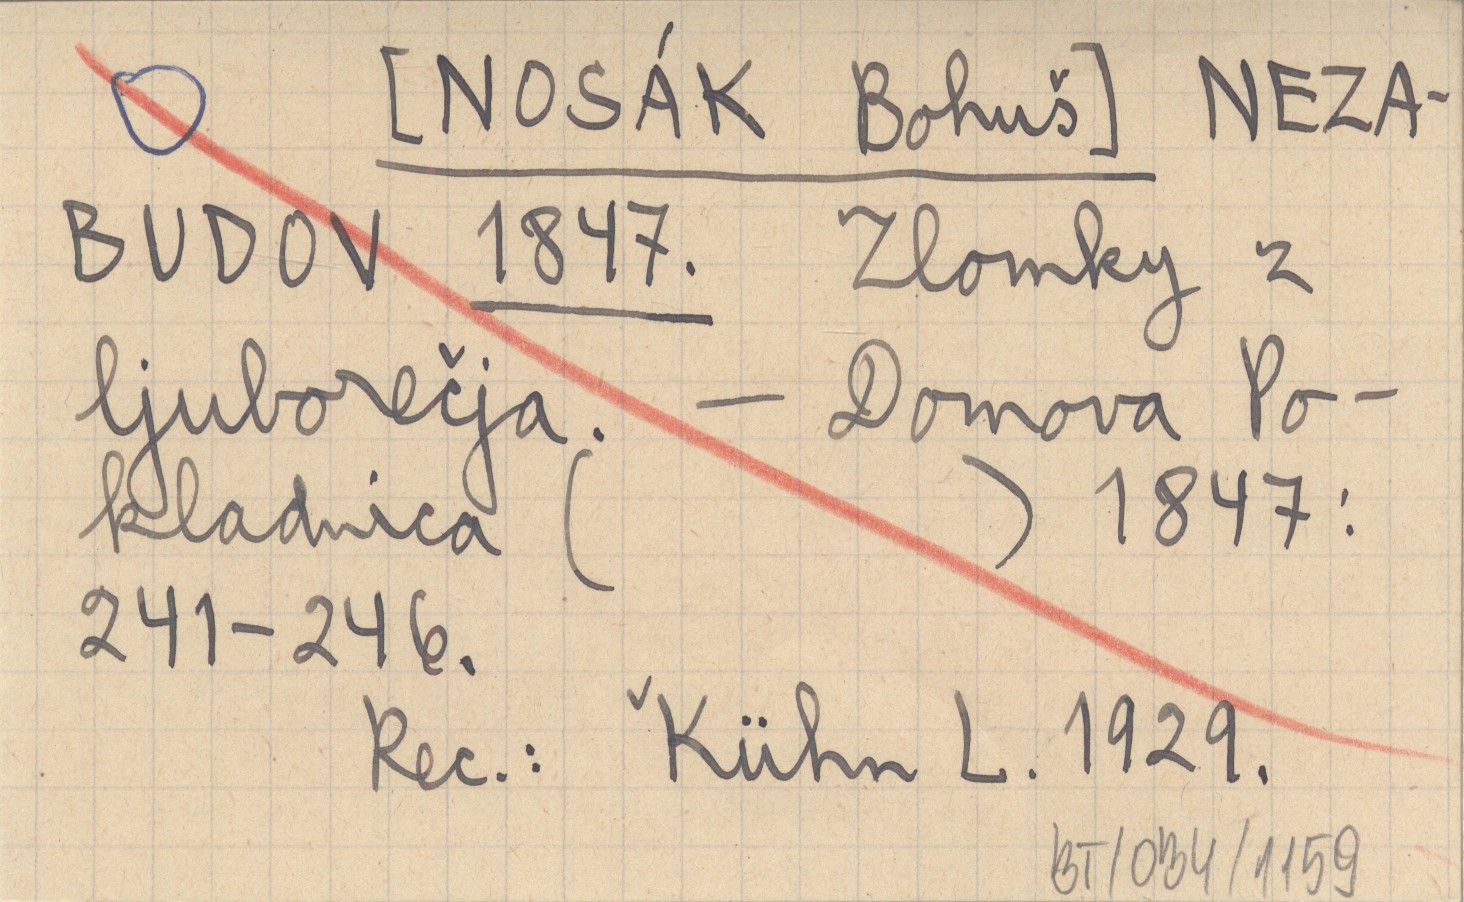 [NOSÁK Bohuš] NEZA-
BUDOV 1847. Zlomky z
ljuborečja. — Domova Po-
kladnica ( ) 1847:
241-246.
Rec.: ˇKühn L. 1929.
BT/OB4/1159